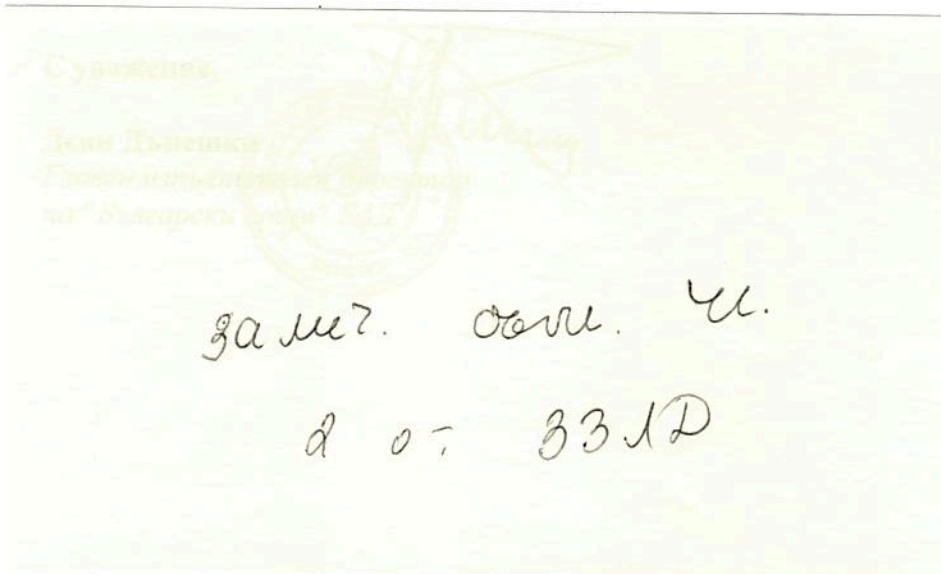 С уважение,
Деян Дънешки
Главен изпълнителен директор
на "Български пощи" ЕАД
залич. обст. чл.
2 от ЗЗЛД